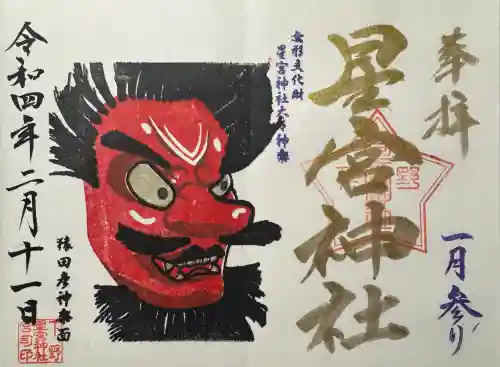 奉拝
一月参り
星宮神社
無形文化財
星宮神社太々神楽
猿田彦神楽面
令和四年二月十一日
下野
星宮神社